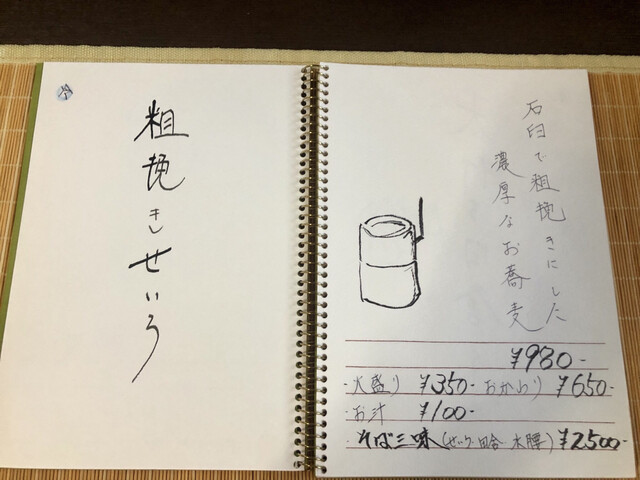 冷
粗挽きせいろ
石臼で粗挽きにした
濃厚なお蕎麦
¥930-
・大盛り ¥350- おかわり ¥650-
・お汁 ¥100-
・そば三味(せいろ 田舎 木腰) ¥2500-